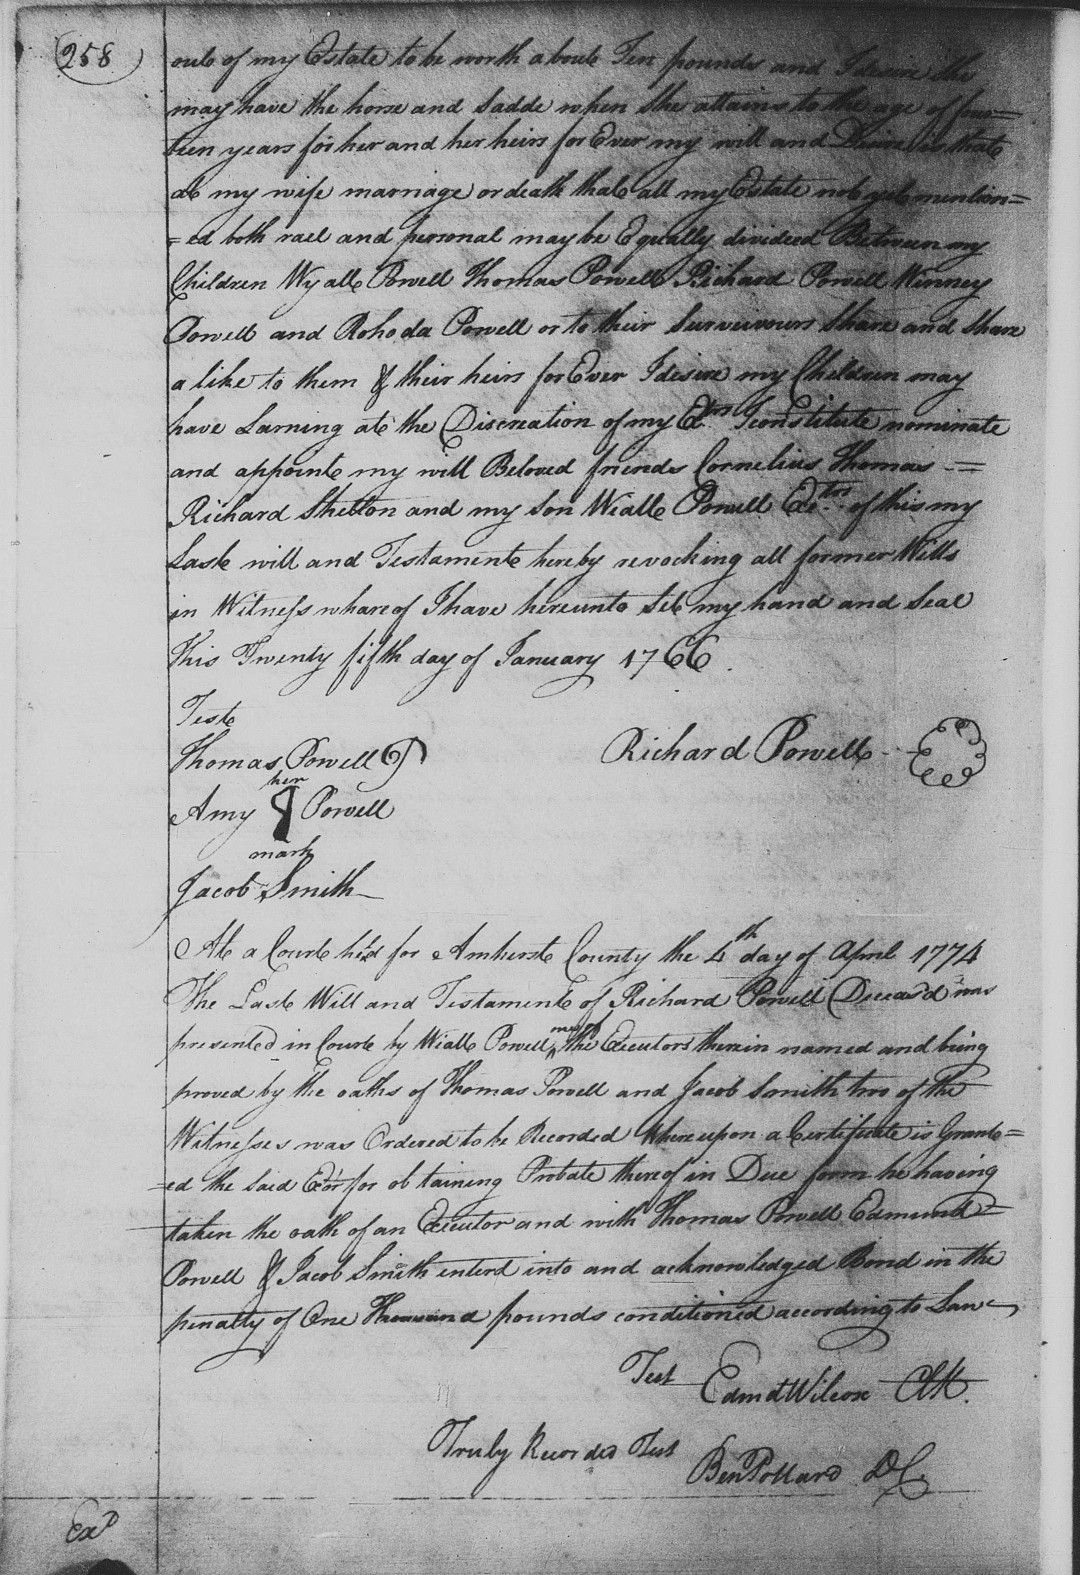 258
oute of my Estate to be worth aboute Ten pounds and I desire she
may have the horse and Sadde when she attains to the age of four=
teen years for her and her heirs for Ever my will and Desire is thate
ate my wife marriage or death thate all my Estate note yete mention=
=ed both rael and personal may be Equally divided Between my
Children Wyatte Powell Thomas Powell Richard Powell Winney
Powell and Rohoda Powell or to their Survivours Share and Share
a like to them & their heirs for Ever I desire my Children may
have Larning ate the Discreation of my Extrs. I constitute nominate
and appointe my will Beloved friends Cornelius Thomas =
Richard Shelton and my Son Wiatte Powell Extrs. of this my
Laste will and Testamente hereby revocking all former Wills
in Witness whareof I have hereunto Sete my hand and Seal
This Twenty fifth day of January 1766.
Teste
Thomas Powell
Richard Powell
her
Amy Powell
mark
Jacob Smith
Ate a Courte held for Amherste County the 4th day of April 1774
The Laste Will and Testamente of Richard Powell Deceas'd was
presented in Courte by Wiatte Powell one of the Executors therein named and being
proved by the oaths of Thomas Powell and Jacob Smith two of the
Witnesses was Ordered to be Recorded Whereupon a Certificate is Grante=
=ed the Said Exor for obtaining Probate thereof in Due form he having
taken the oath of an Executor and with Thomas Powell Edmund
Powell & Jacob Smith enterd into and acknowledged Bond in the
penalty of One Thousand pounds conditioned according to Law
Test Edmd Wilcox Clk.
Truly Recorded Test
Ben Pollard D C.
Exd